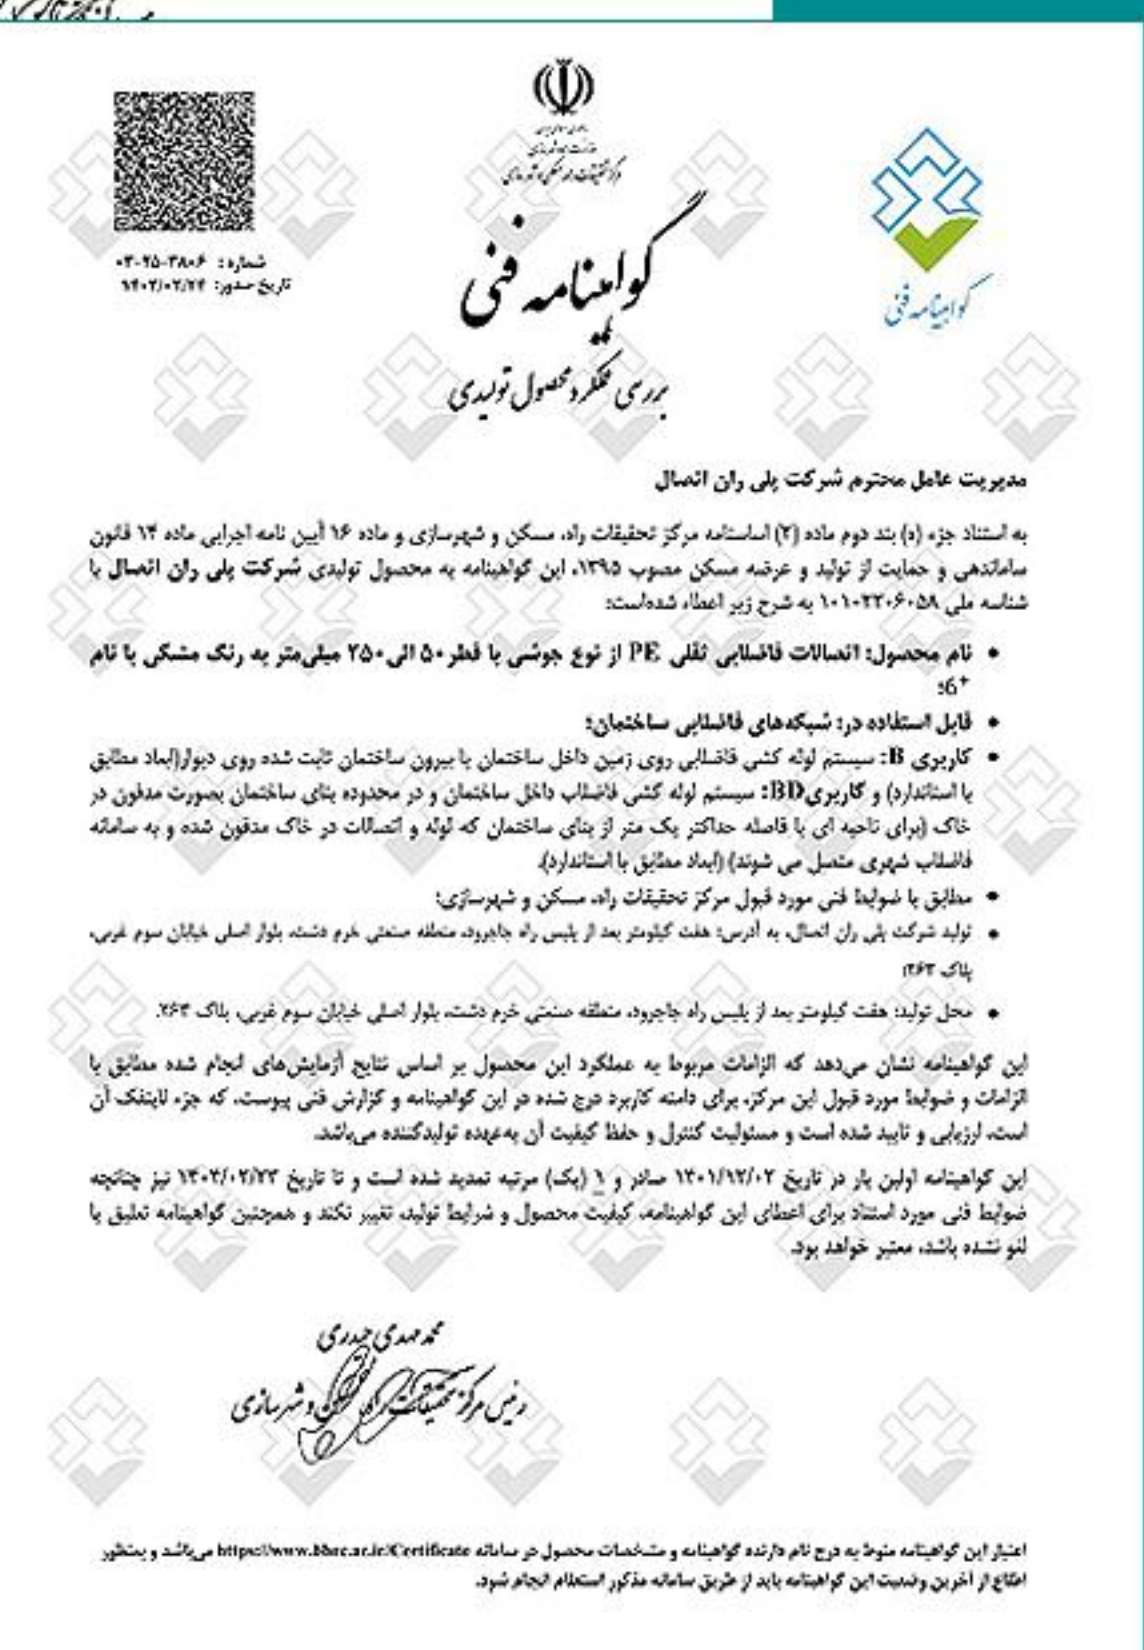 وزارت راه و شهرسازی
مرکز تحقیقات راه، مسکن و شهرسازی
گواهینامه فنی
شماره: ۰۳-۲۵-۳۸۰۶
تاریخ صدور: ۱۴۰۳/۰۲/۲۴
گواهینامه فنی
بررسی عملکرد محصول تولیدی
مدیریت عامل محترم شرکت پلی ران اتصال
به استناد جزء (ه) بند دوم ماده (۲) اساسنامه مرکز تحقیقات راه، مسکن و شهرسازی و ماده ۱۶ آیین نامه اجرایی ماده ۱۴ قانون
ساماندهی و حمایت از تولید و عرضه مسکن مصوب ۱۳۹۵، این گواهینامه به محصول تولیدی شرکت پلی ران اتصال با
شناسه ملی ۱۰۱۰۲۲۰۶۰۵۸ به شرح زیر اعطاء شده‌است:
• نام محصول: اتصالات فاضلابی ثقلی PE از نوع جوشی با قطر ۵۰ الی ۲۵۰ میلی‌متر به رنگ مشکی با نام
6⁺؛
• قابل استفاده در: شبکه‌های فاضلابی ساختمان؛
• کاربری B: سیستم لوله کشی فاضلابی روی زمین داخل ساختمان یا بیرون ساختمان ثابت شده روی دیوار(ابعاد مطابق
با استاندارد) و کاربری BD: سیستم لوله کشی فاضلاب داخل ساختمان و در محدوده بنای ساختمان بصورت مدفون در
خاک (برای ناحیه ای با فاصله حداکثر یک متر از بنای ساختمان که لوله و اتصالات در خاک مدفون شده و به سامانه
فاضلاب شهری متصل می شوند) (ابعاد مطابق با استاندارد).
• مطابق با ضوابط فنی مورد قبول مرکز تحقیقات راه، مسکن و شهرسازی؛
• تولید شرکت پلی ران اتصال، به آدرس: هفت کیلومتر بعد از پلیس راه جاجرود، منطقه صنعتی خرم دشت، بلوار اصلی خیابان سوم غربی،
پلاک ۲۶۳؛
• محل تولید: هفت کیلومتر بعد از پلیس راه جاجرود، منطقه صنعتی خرم دشت، بلوار اصلی خیابان سوم غربی، پلاک ۲۶۳.
این گواهینامه نشان می‌دهد که الزامات مربوط به عملکرد این محصول بر اساس نتایج آزمایش‌های انجام شده مطابق با
الزامات و ضوابط مورد قبول این مرکز، برای دامنه کاربرد درج شده در این گواهینامه و گزارش فنی پیوست، که جزء لاینفک آن
است، ارزیابی و تایید شده است و مسئولیت کنترل و حفظ کیفیت آن به‌عهده تولیدکننده می‌باشد.
این گواهینامه اولین بار در تاریخ ۱۴۰۱/۱۲/۰۲ صادر و ۱ (یک) مرتبه تمدید شده است و تا تاریخ ۱۴۰۴/۰۲/۲۳ نیز چنانچه
ضوابط فنی مورد استناد برای اعطای این گواهینامه، کیفیت محصول و شرایط تولید، تغییر نکند و همچنین گواهینامه تعلیق یا
لغو نشده باشد، معتبر خواهد بود.
محمد مهدی حیدری
رئیس مرکز تحقیقات راه، مسکن و شهرسازی
اعتبار این گواهینامه منوط به درج نام دارنده گواهینامه و مشخصات محصول در سامانه https://www.bhrc.ac.ir/Certificate می‌باشد و بمنظور
اطلاع از آخرین وضعیت این گواهینامه باید از طریق سامانه مذکور استعلام انجام شود.